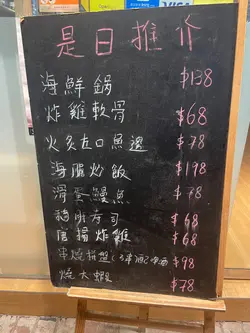 是日推介
海鮮鍋 $138
炸雞軟骨 $68
火炙左口魚邊 $78
海膽炒飯 $198
滑蛋鰻魚 $78
鵝肝壽司 $68
唐揚炸雞 $68
串燒拼盤 $98
燒大蝦 $78